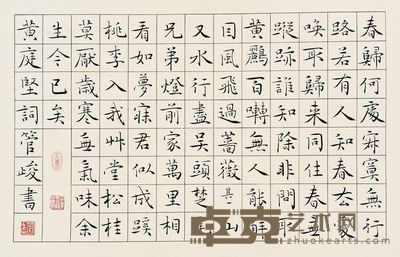 春歸何處寂寞無行
路若有人知春去處
喚取歸来同住春無
蹤跡誰知除非問取
黃鸝百囀無人能解
因風飛過薔薇山
又水行盡吳頭楚尾
兄弟燈前家萬里相
看如夢寐君似成蹊
桃李入我艸堂松桂
莫厭歲寒無氣味余
生今已矣
黃庭堅詞管峻書
卓克艺术网
zhuokearts.com